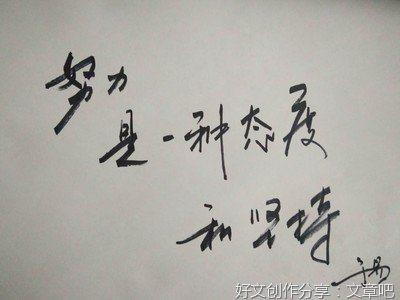 努力
是一种态度
和坚持
好文创作分享：文章吧